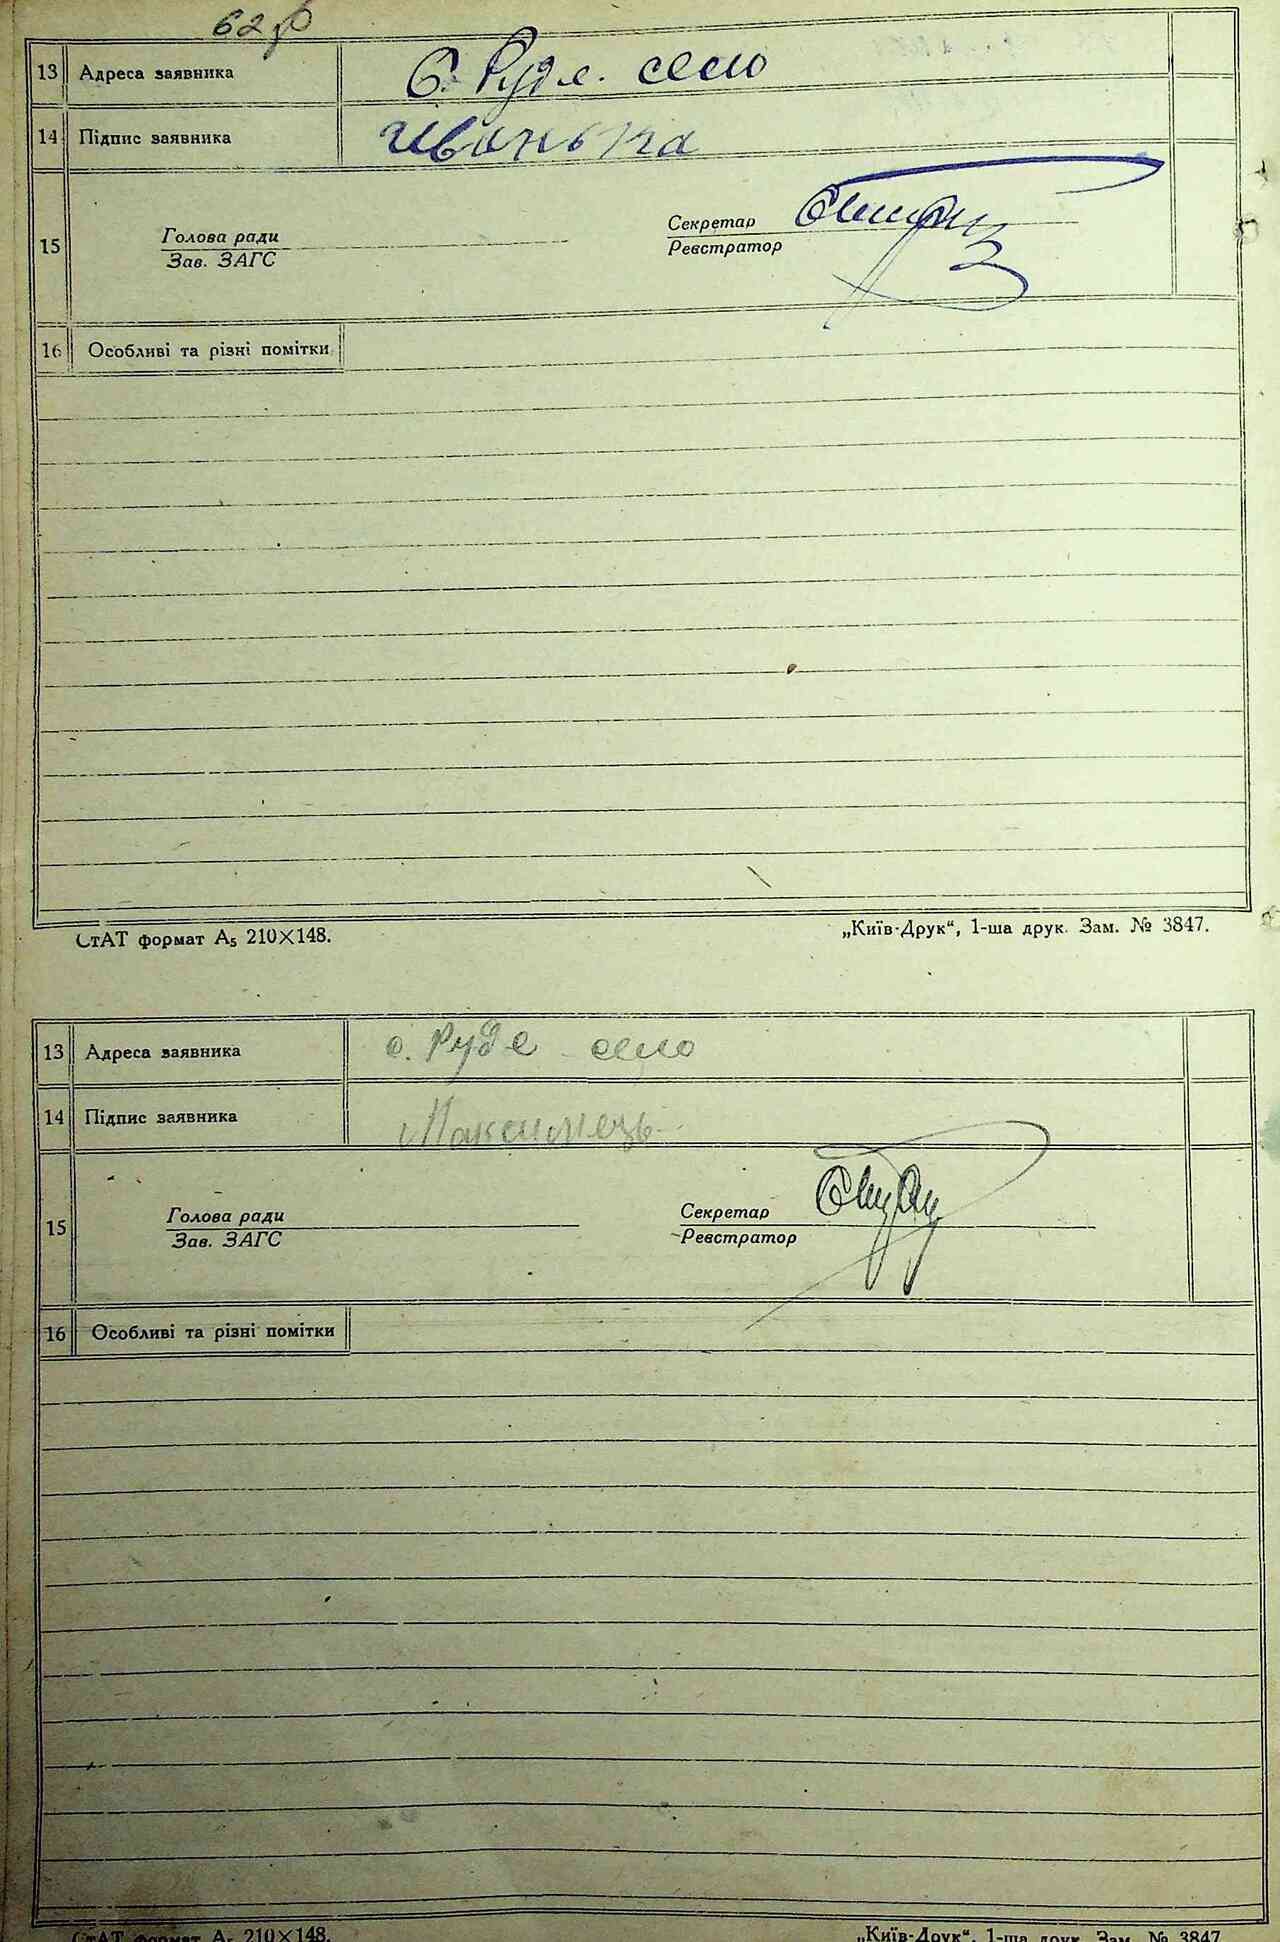 62 зв
13 Адреса заявника с. Руде село
14 Підпис заявника Іванька
15 Голова ради Секретар
Зав. ЗАГС Реєстратор
16 Особливі та різні помітки
СтАТ формат А₅ 210×148. „Київ-Друк“, 1-ша друк. Зам. № 3847.
13 Адреса заявника с. Руде село
14 Підпис заявника Максимець
15 Голова ради Секретар
Зав. ЗАГС Реєстратор
16 Особливі та різні помітки
СтАТ формат А₅ 210×148. „Київ-Друк“, 1-ша друк. Зам. № 3847